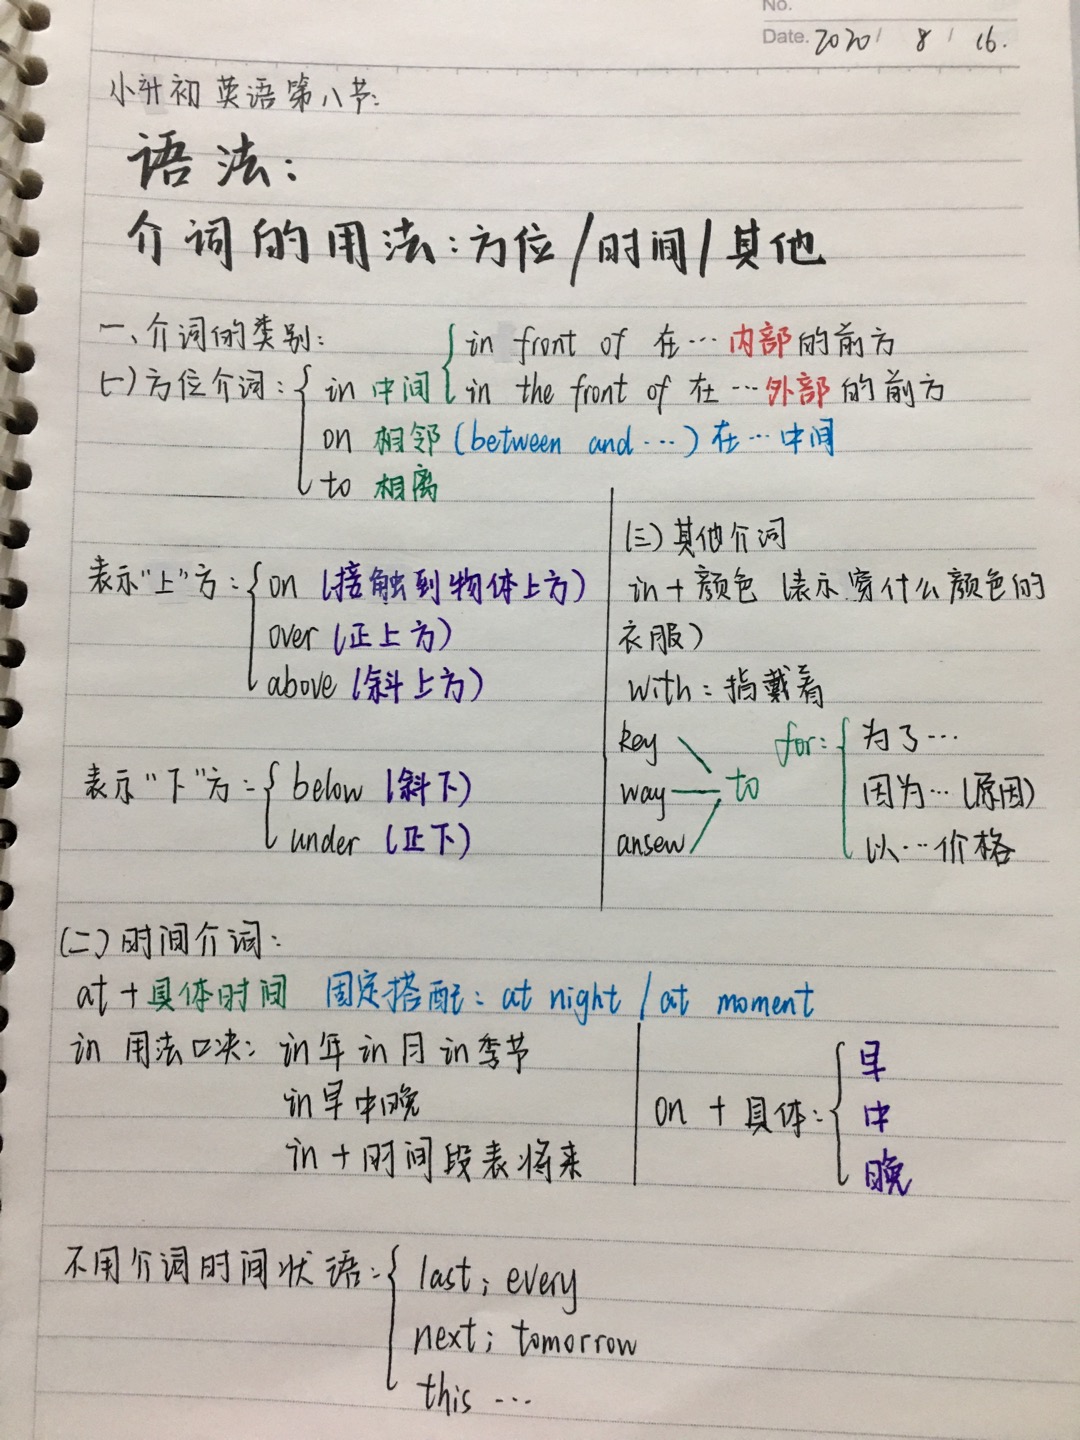 No.
Date. 2020 / 8 / 16.
小升初英语第八节:
语法:
介词的用法:方位/时间/其他
一、介词的类别:
in front of 在…内部的前方
(一)方位介词: in 中间 in the front of 在…外部的前方
on 相邻 (between and …) 在…中间
to 相离
表示"上"方: on (接触到物体上方)
over (正上方)
above (斜上方)
表示"下"方: below (斜下)
under (正下)
(三)其他介词
in + 颜色 (表示穿什么颜色的
衣服)
with: 指戴着
key
way to
ansew
for: 为了…
因为… (原因)
以…价格
(二)时间介词:
at + 具体时间 固定搭配: at night / at moment
in 用法口决: in 年 in 月 in 季节
in 早中晚
in + 时间段表将来
on + 具体: 早
中
晚
不用介词时间状语: last; every
next; tomorrow
this …